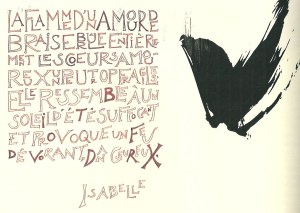 LA FLAMME D'UN AMOUR DE
BRAISE BRÛLE ENTIÈRE
MENT LES CŒURS AMOU
REUX UN PEU TROP FRAGILES
ELLE RESSEMBLE À UN
SOLEIL D'ÉTÉ SUFFOCANT
ET PROVOQUE UN FEU
DÉVORANT, DANGEREUX.
ISABELLE